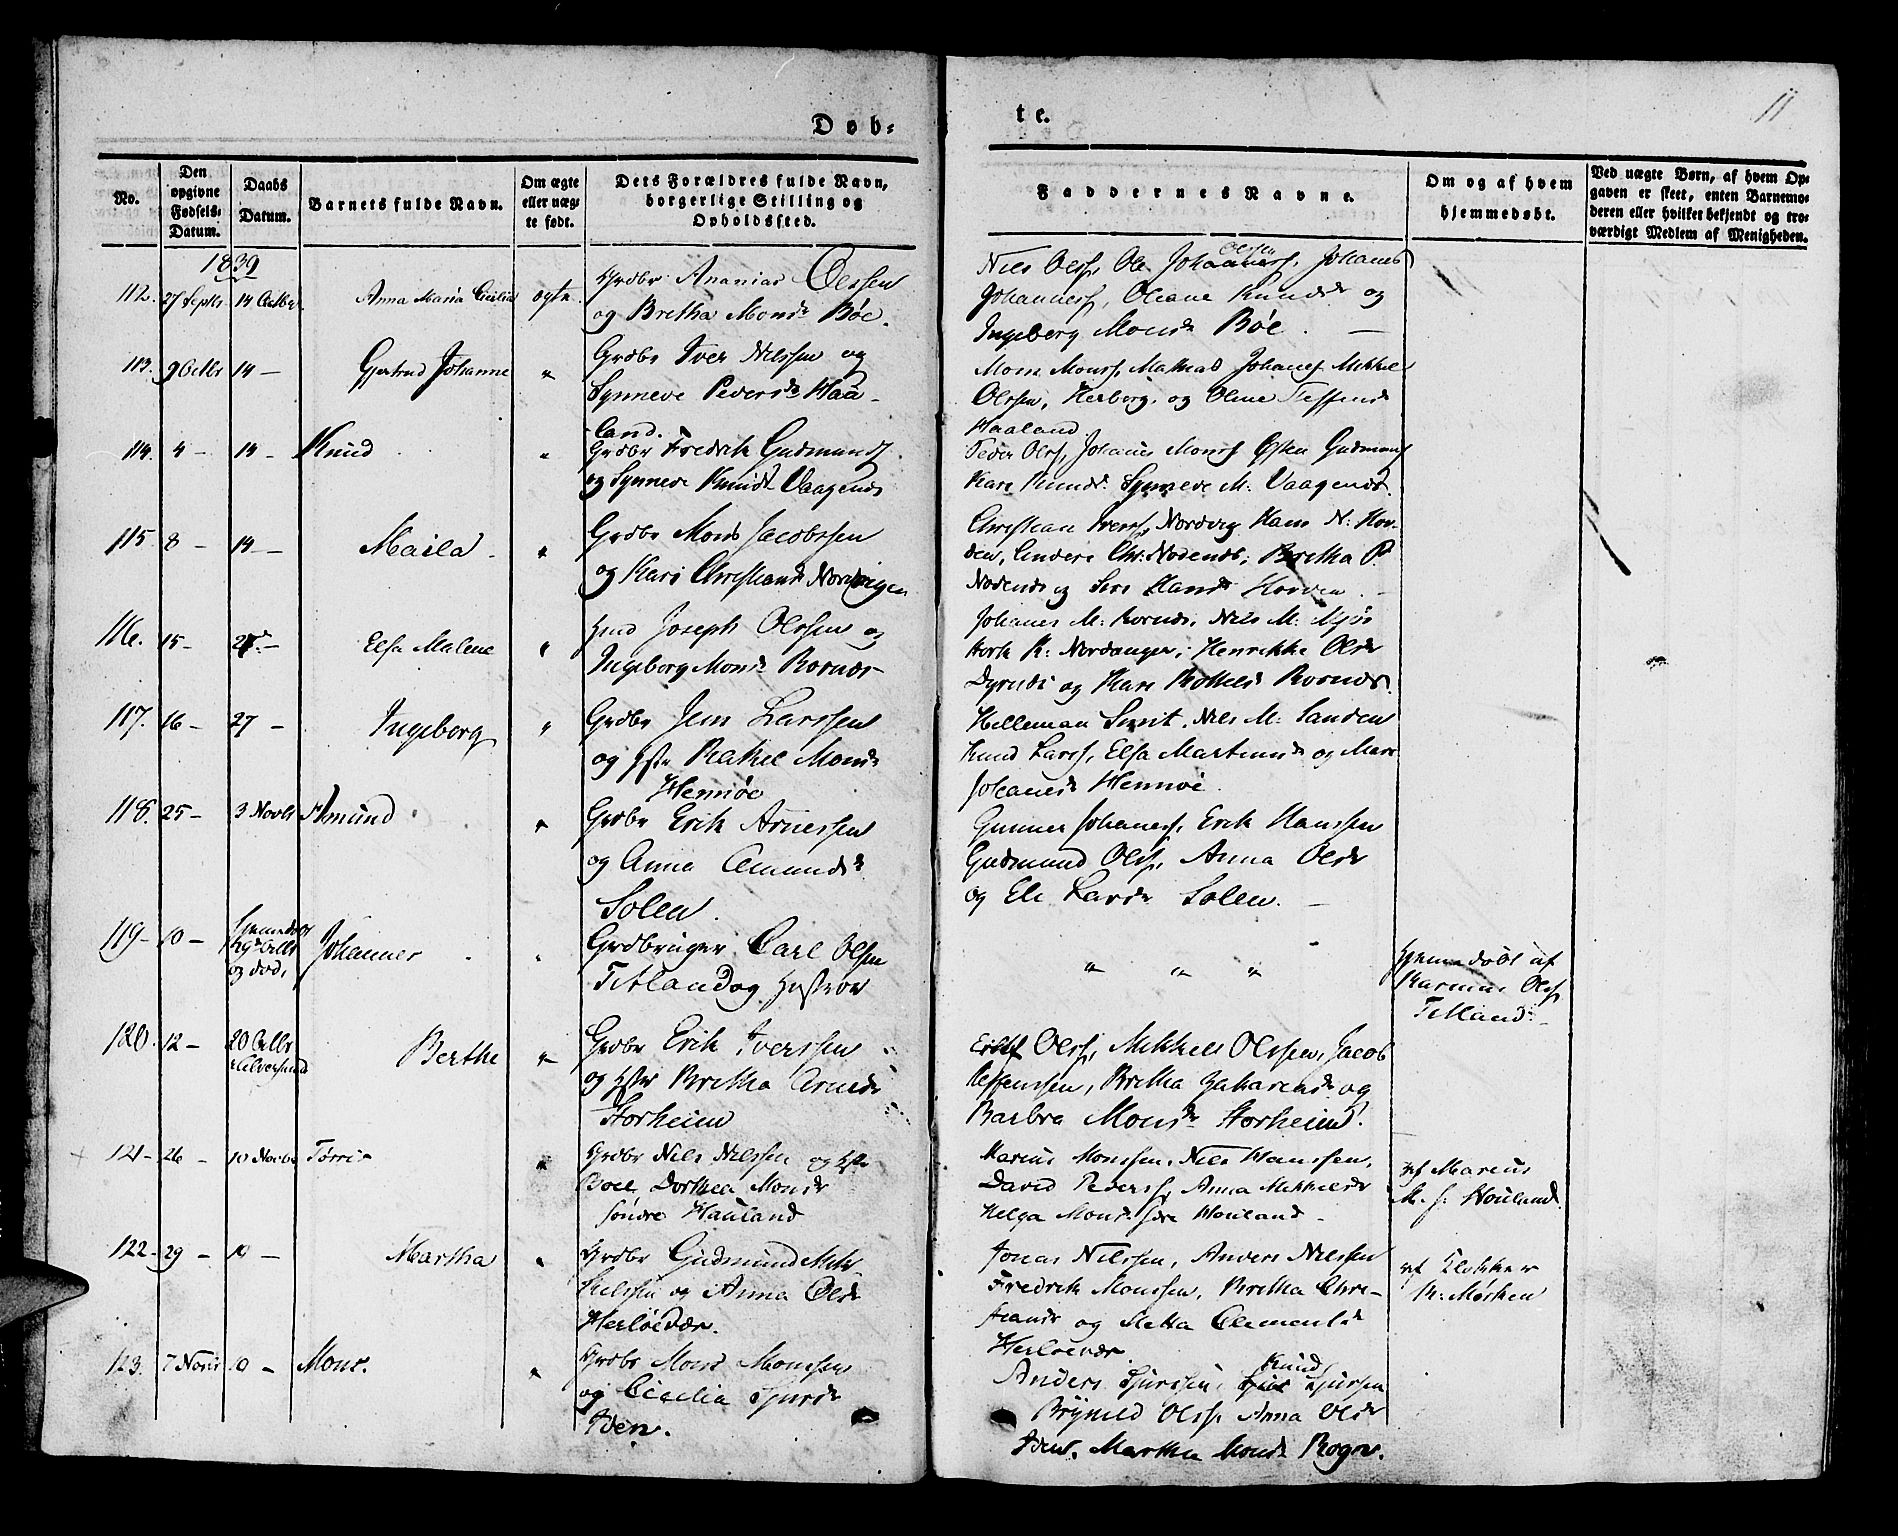 11
Døb-
te.
No.
Den opgivne Fødsels-Datum.
Daabs Datum.
Barnets fulde Navn.
Om ægte eller uæg-te født.
Dets Forældres fulde Navn, borgerlige Stilling og Opholdssted.
Faddernes Navne.
Om og af hvem hjemmedøbt.
Ved uægte Børn, af hvem Op-gaven er skeet, enten Barnemo-deren eller hvilket bekjendt og tro-værdigt Medlem af Menigheden.
1839
112. 27 Septr 14 Octbr Anna Maria Cicilia ægte. Grdbr Ananias Olssen
og Bretha Monsd Bøe.
Nils Olss, Ole Olssen Johannes
Johanness, Oleane Knudsd og
Ingeborg Monsd Bøe.
113. 9 Octbr 14 — Gjertrud Johanne " Grdbr Iver Nilssen og
Synneve Pedersd Haa-
land.
Mons Monss, Mathias Johaness Mikkel
Olssen, Herborg og Oline Steffensd
Haaland
114. 4 — 14 — Knud " Grdbr Fredrik Gudmunds
og Synneve Knudsd Vaagenes
Peder Olss, Johanes Monss Østen Gudmunds
Kari Knudsd Synneve M. Vaagenes.
115 8 — 14 — Maila " Grdbr Mons Jacobssen
og Kari Christiansd Nordvigen
Christian Iverss, Nordvig Hans N. Hov-
den, Anders Chr. Nodenes, Bretha P.
Nodenes og Siri Hansd Hovden.
116. 15 — Elsa Malene " Hmd Joseph Olssen og
Ingeborg Monsd Rornæs
Johanes M. Rornæs, Nils M. Mjøs
R. Nordanger, Henrikke Olsd
Dyrnæs og Kari Rornæs.
117. 16 — 27 — Ingeborg " Grdbr Jens Larssen
og Hstr Rakel Monsd
Hennøe
Helleman Smit, Nils M. Sanden
Knud Larss, Elsa Martinusd og Mari
Johanesd Hennøe.
118. 25 — 3 Novbr Amund " Grdbr Erik Arnessen
og Anna Amundsd
Solem.
Gunner Johaness, Erik Hanssen
Gudmund Olss, Anna Olsd
og Eli Larsd Solem.
119 — 10 — Hjemmedøbt
Octbr
og død, Johannes " Grdbruger Carl Olsen
Titland og Hustroe
" " "
Hjemmedøbt af
Rasmus Olss
Titland.
120. 12 — 20 Octbr
i Alversund Berthe " Grdbr Erik Iverssen
og Hstr Bretha Arnesd
Storheim
Olss, Mikkel Olssen, Jacob
Steffenssen, Bretha Zakariasd og
Barbra Monsd Storheim.
121 — 26 — 10 Novbr Tørris " Grdbr Nils Nilssen og Hstr
Boel Dorthea Monsd
Søndre Hauland
Marius Monssen, Nils Hanssen,
David Pederss, Anna Mikkelsd
Helga Monsd Sdre Houland —
af Marius
M. s. Houland.
122 — 29 — 10 — Martha " Grdbr Gudmund Mik-
kelssen og Anna Olsd
Herløevær.
Jonas Nilssen, Anders Nilssen
Fredrik Monssen, Bretha Chri-
stiansd og Metta Clementsd
Herløevær.
af Klokker
R. Mørken
123. 7 Novbr 10 — Mons. " Grdbr Mons Monssen
og Cicelia Sjursd
Iden.
Anders Sjurssen, Knud Sjurssen
Brynild Olss, Anna Olsd
Iden. Martha Monsd Rogn.